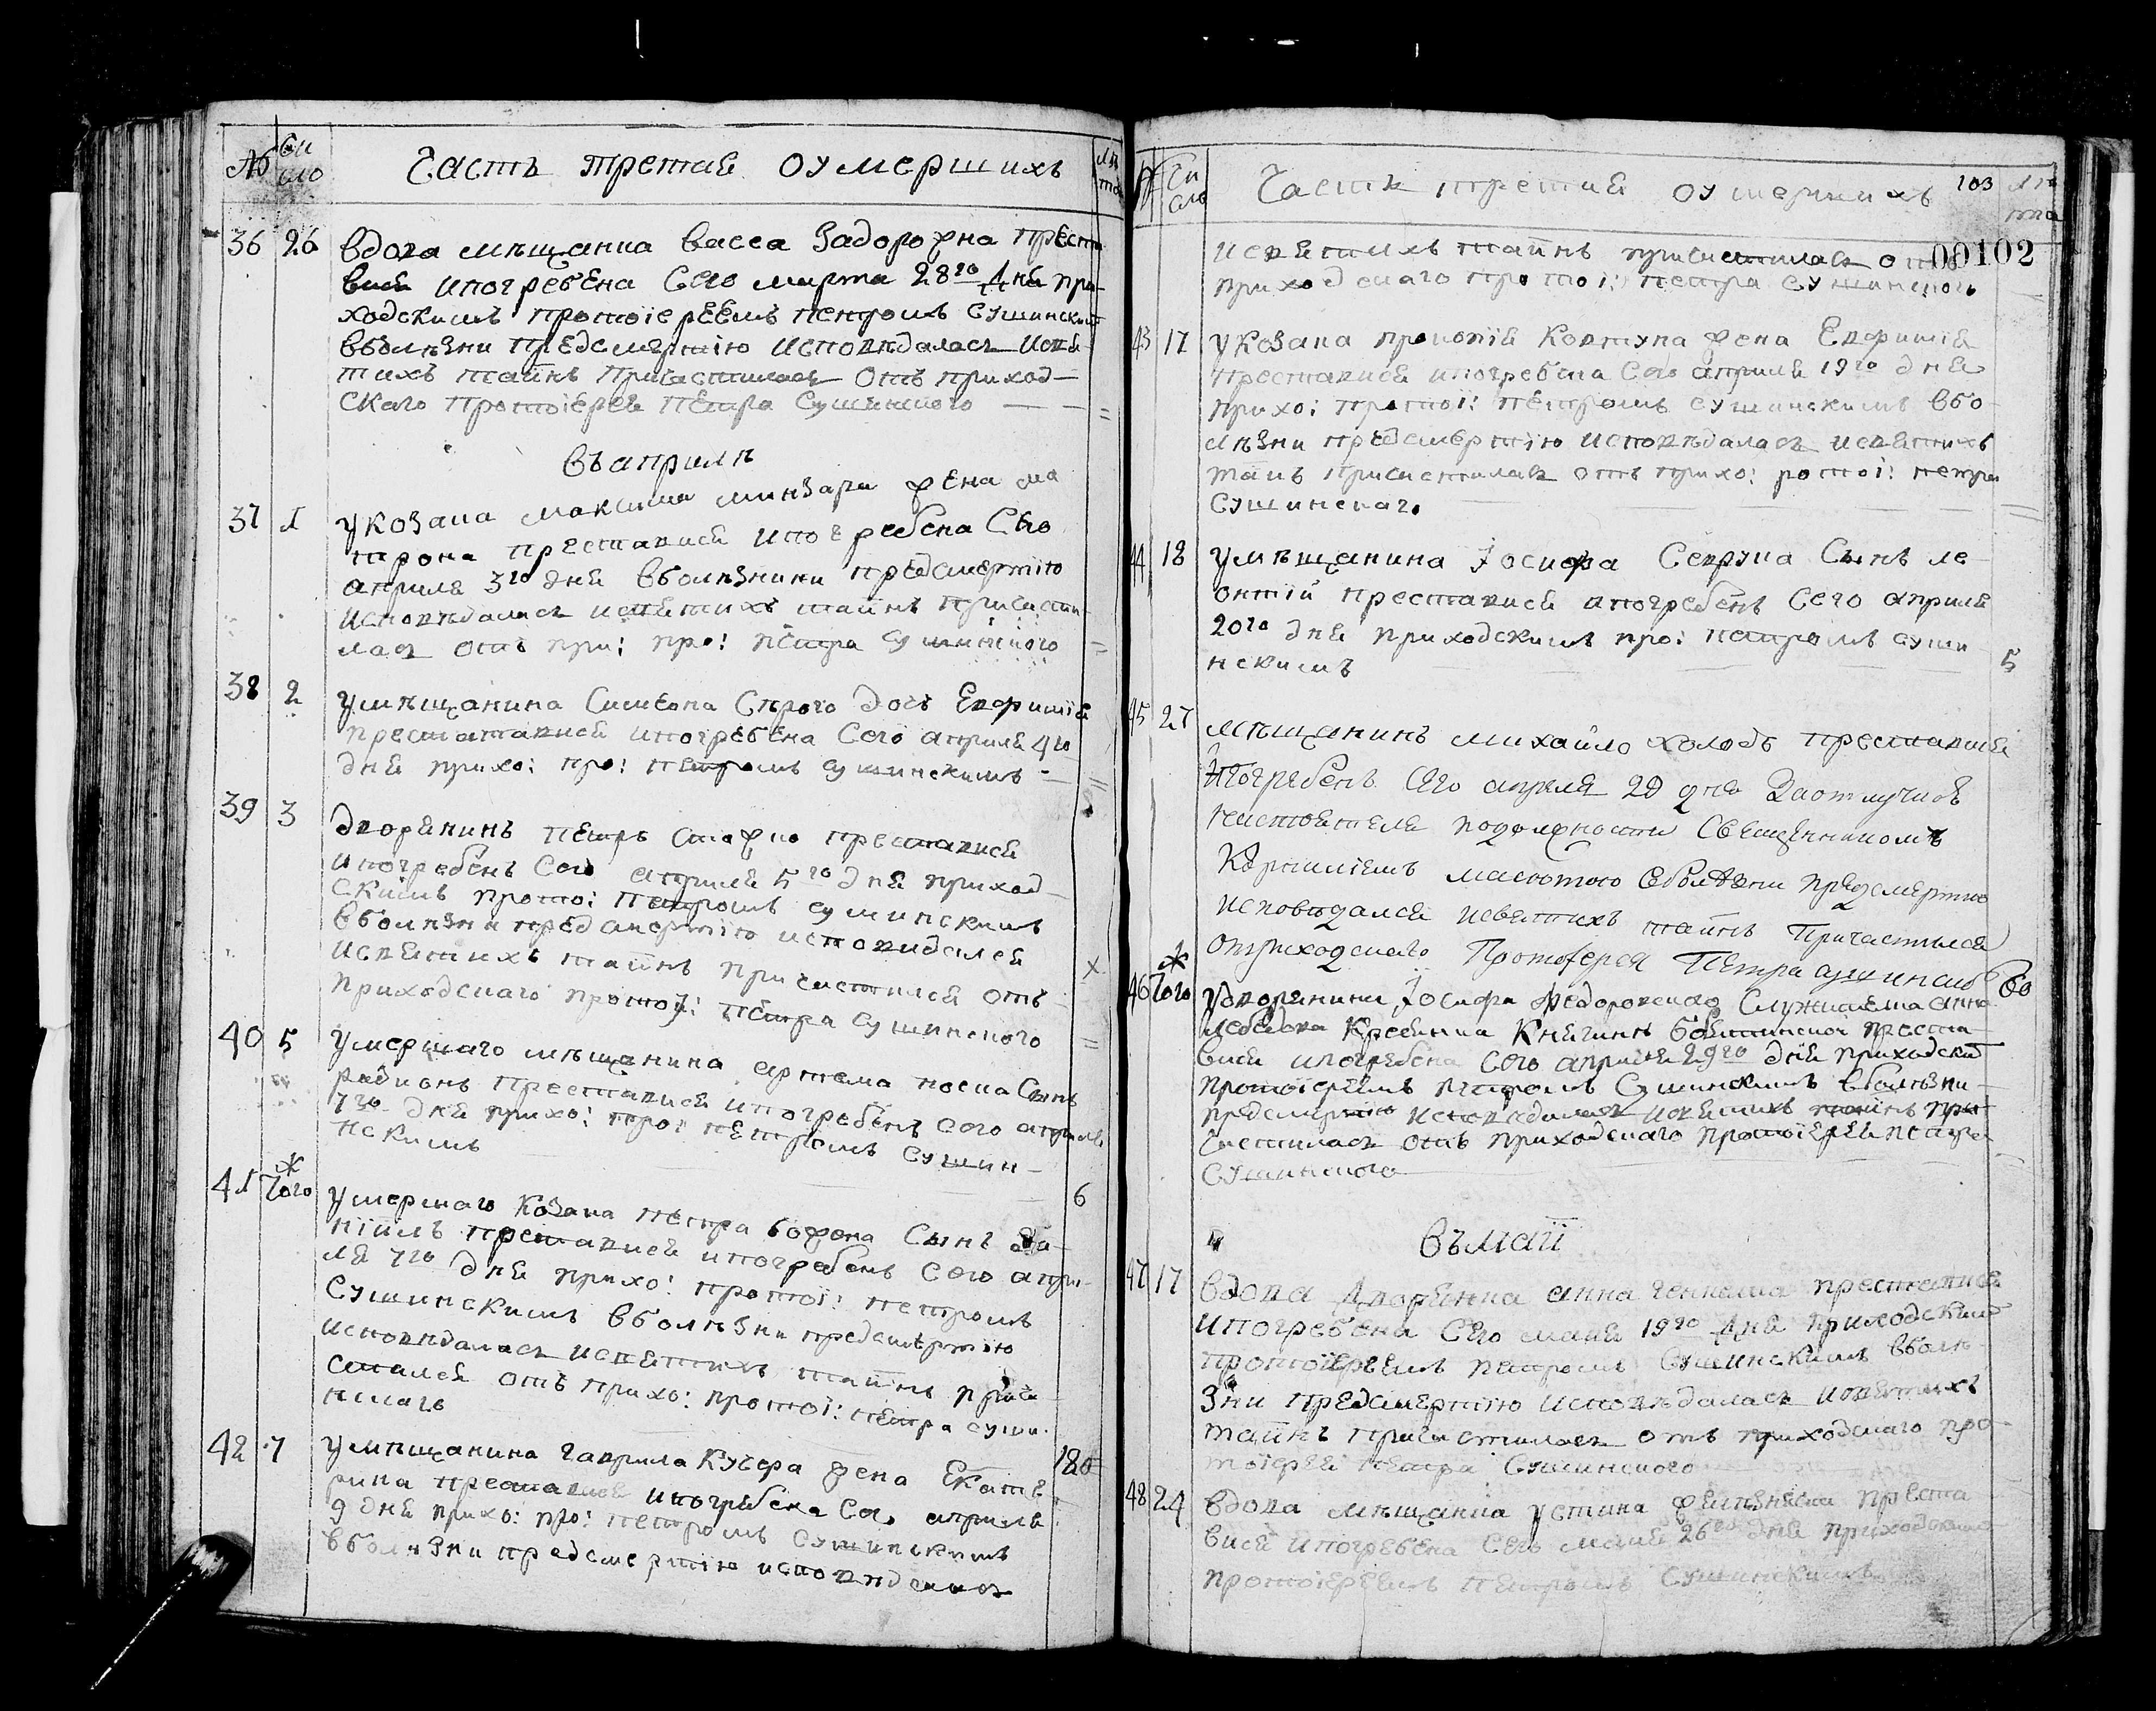 № Чи сло Часть третая оумершихъ Лѣ та
36 26 вдова мѣщанка васса Задорожна преста
вися ипогребена Сего марта 28го дня при-
ходскимъ протоіереемъ петромъ Сушинским
вболѣзни предсмертію исповѣдалась исвя-
тихъ тайнъ причастилась отъ приход-
скаго протоіерея петра Сушинского =
въаприлѣ
37 1 укозака максима минзара жена ма
трона преставися ипогребена Сего
априля 3го дня вболѣзнини предсмертію
исповѣдалась исвятихъ тайнъ причасти-
лась отъ при: про: петра Сушинского =
38 2 умѣщанина Симеона Сѣрого дочъ Евфимія
престатавися ипогребена Сего априля 4го
дня прихо: про: петромъ сушинскимъ =
39 3 дворянинъ петръ преставися
ипогребенъ Сего априля 5го дня приход-
скимъ прото: петромъ сушинскимъ
вболѣзни предсмертію исповидался
исвятихъ тайнъ причастился отъ
приходскаго протоі: петра сушинского х =
40 5 умершаго мѣщанина артема носка Сынъ
радионъ преставися ипогребенъ Сего априля
7го дня прихо: про: петромъ Сушин-
скимъ 6
41 Того ж умершаго козака петра божона Сынъ да-
ніилъ преставися ипогребенъ Сего апри-
ля 7го дня прихо: протоі: петромъ
Сушинскимъ вболѣзни предсмертію
исповѣдалась исвятихъ тайнъ прича
стился отъ прихо: протоі: петра суши-
нскаго 18
42 7 умѣщанина гаврила Кучера жена Екате
рина преставися ипогребена Сего априля
9 дня прихо: про: петромъ Сушинскимъ
вболѣзни предсмертію исповѣдалась
№ Чи сло Часть третая оумершихъ 103 Лѣ та
исвятихъ тайнъ причастилась отъ 00102
приходскаго протоі: петра сушинского =
43 17 укозака прокопій Ковтуна жена Евфимія
преставися ипогребена Сего априля 19го дня
прихо: протоі: петромъ сушинскимъ вбо-
лѣзни предсмертію исповѣдалась исвятихъ
таинъ причастилась отъ прихо: ротоі: петра
сушинскаго =
44 18 умѣщанина Іосифа Севрука Сынъ ле-
онтій преставися ипогребенъ Сего априля
20го дня приходскимъ про: петромъ суши-
нскимъ 5
45 27 мѣщанинъ михайло холодъ преставися
Ипогребенъ Сего апреля 29 дня Заотлучков
настоятеля подолжности Священникомъ
исповѣдался исвятихъ тайнъ Причастился
отприходскаго Протоіерея Петра сушинско 60
46 Того ж удворянина Іосифа Федоровскаго Служителька анна
лебедева Княгинь преста-
вися ипогребена Сего априля 29го дня приходским
протоіереемъ петромъ Сушинскимъ вболѣзни-
предсмертію исповѣдалась исвятихъ тайнъ при-
частилась отъ приходскаго протоіерея петра
сушинского =
въмаіи
47 17 вдова дворянка анна преставися
ипогребена Сего майя 19го дня приходским
протоіереемъ петромъ Сушинскимъ вболѣ-
зни предсмертію исповѣдалась исвятихъ
тайнъ причастилась отъ приходскаго про-
тоіерея петра Сушинского
48 24 вдова мѣщанка устина преста
вися ипогребена Сего майя 26го дня приходским
протоіереемъ петромъ Сушинскимъ